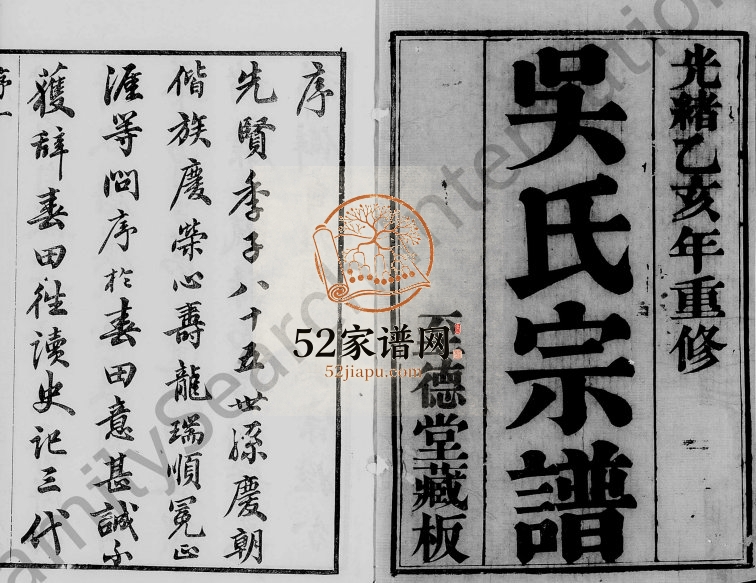 光緒乙亥年重修
吳氏宗譜
至德堂藏板
序
先賢季子八十五世孫慶朝
偕族慶榮心壽龍瑞順冕正
涯等問序於春田意甚誠不
獲辞春田徃讀史记三代
序一
52家谱网
52jiapu.com
FamilySearch International